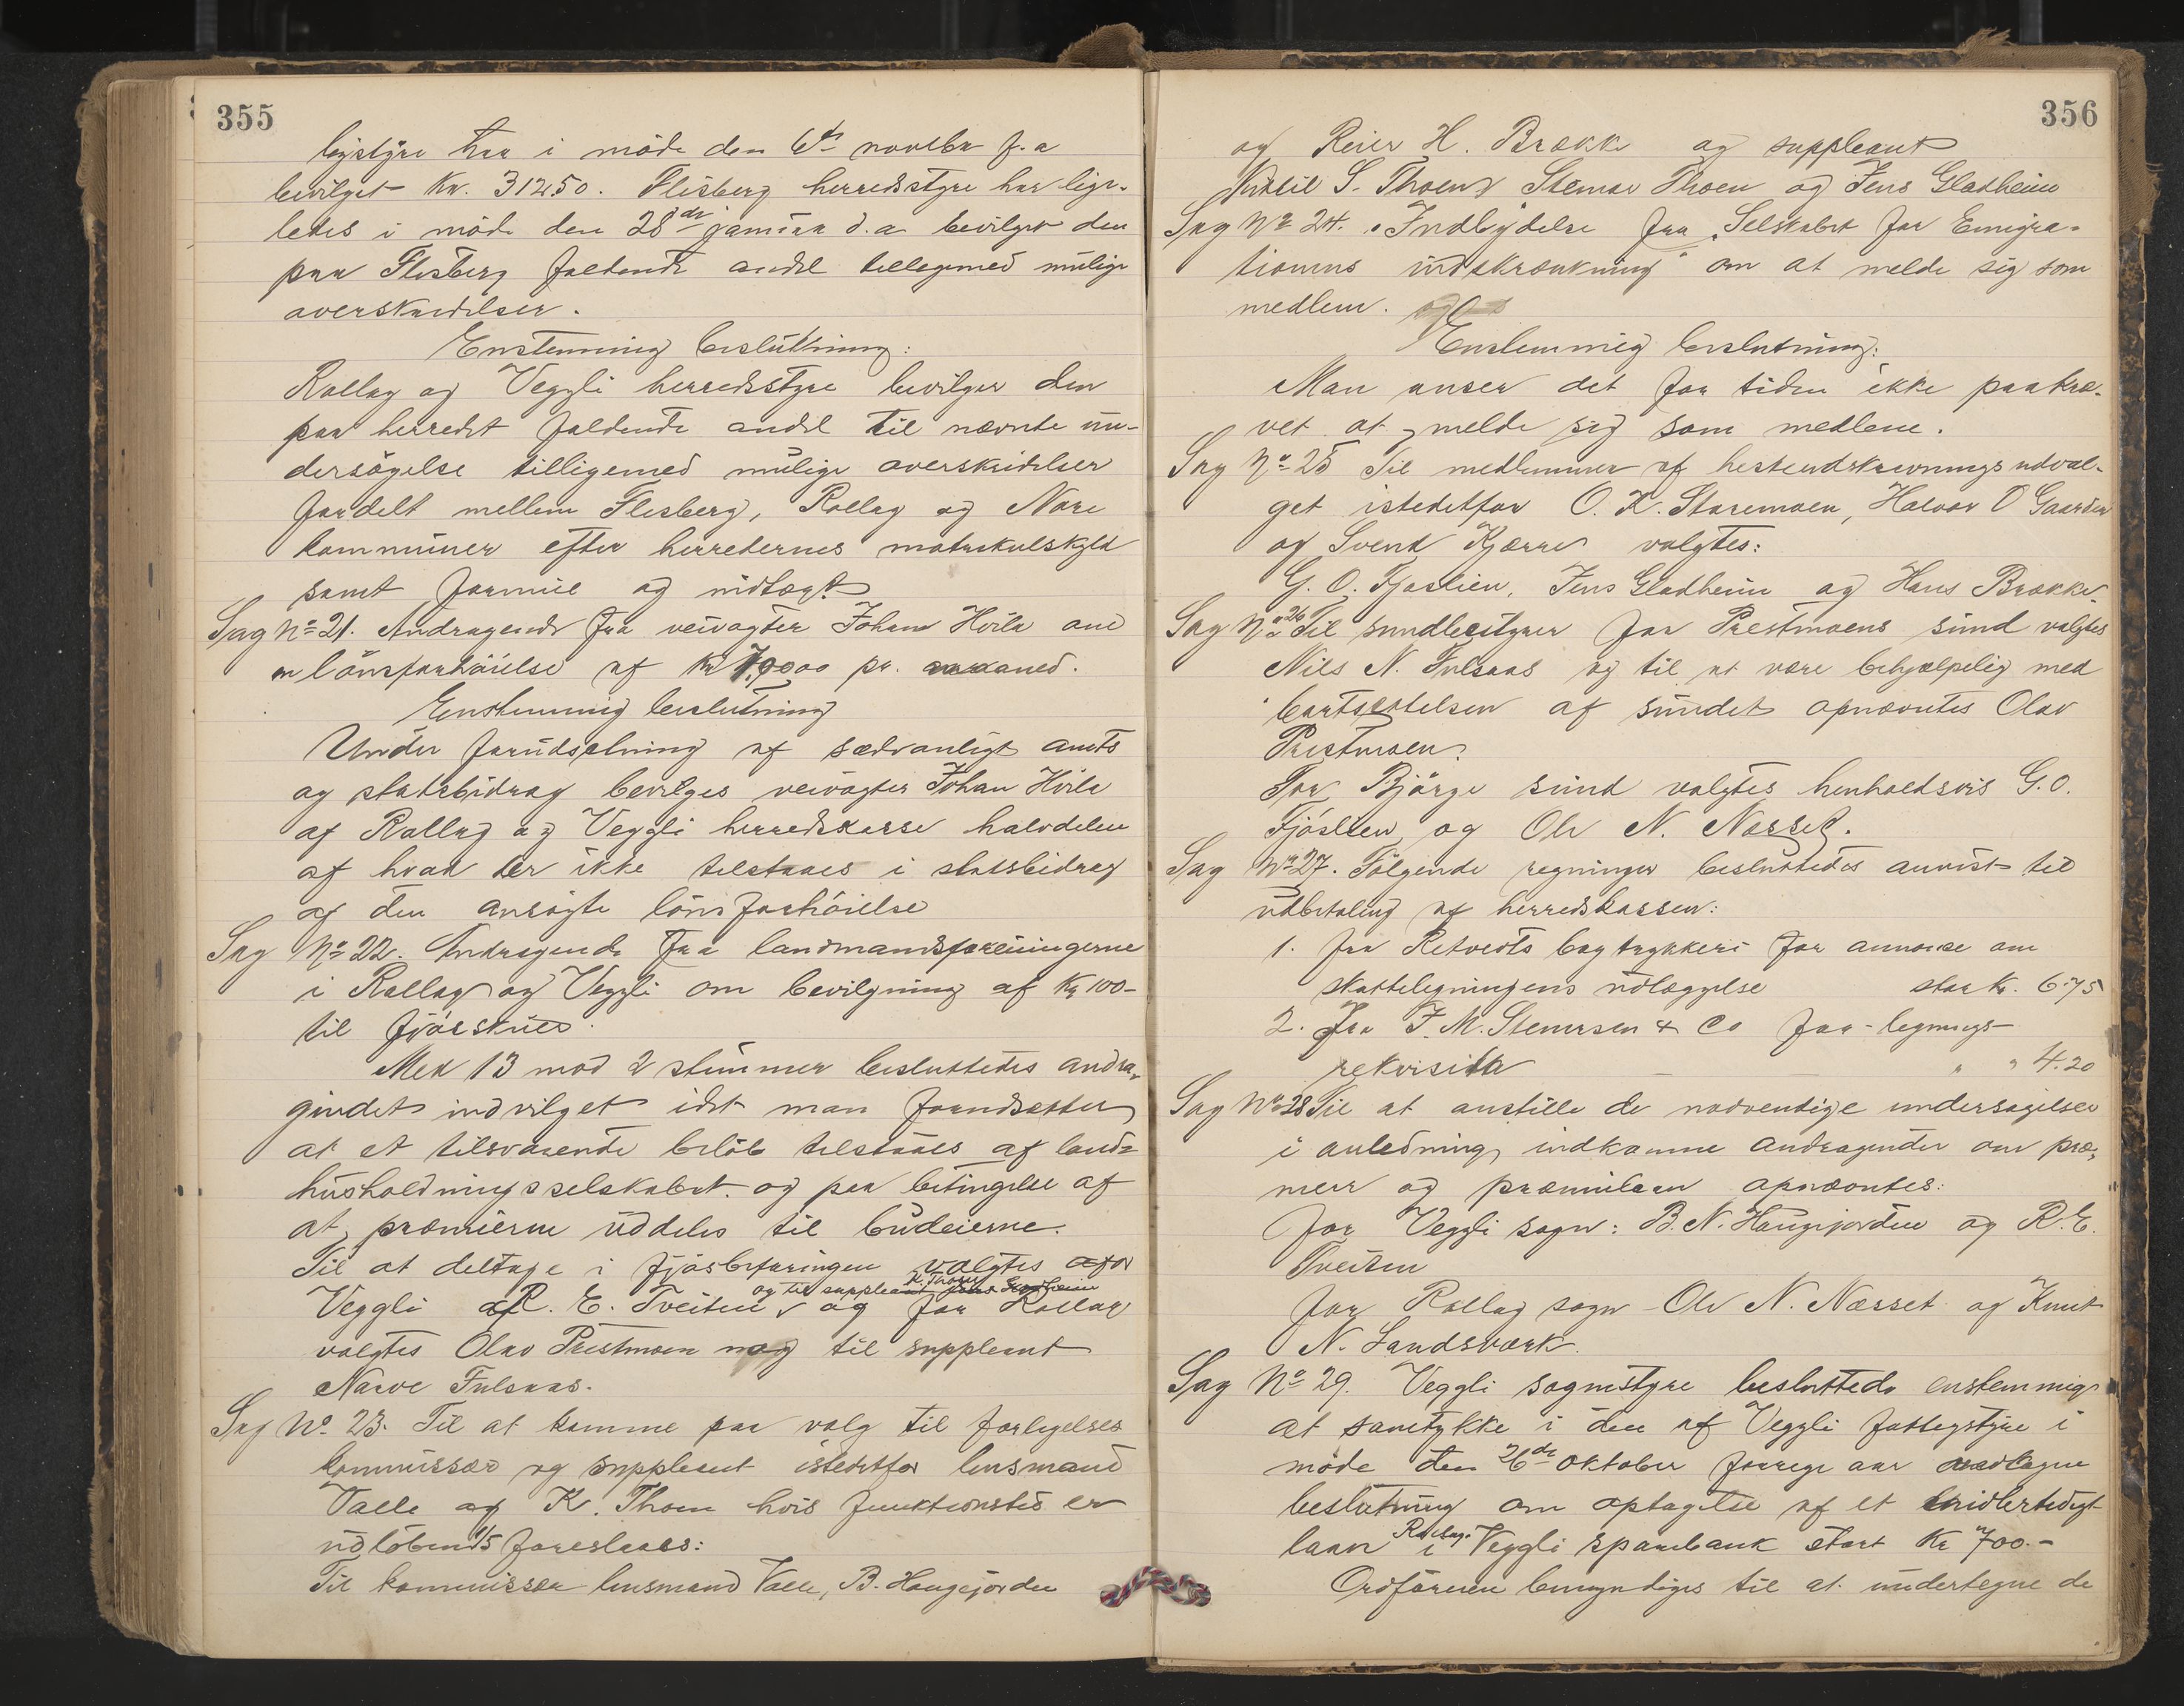 355
bystyre har i möde den 6te novbr f. a
bevilget Kr. 312.50. Flesberg herredsstyre har lige-
ledes i möde den 28de januar d.a. bevilget den
paa Flesberg faldende andel tilligemed mulige
overskridelser.
Enstemmig beslutning:
Rollag og Veggli herredsstyre bevilger den
paa herredet faldende andel til nævnte un-
dersögelse tilligemed mulige overskridelser
fordelt mellem Flesberg, Rollag og Nore
kommuner efter herredernes matrikulskyld
samt formue og indtægt
Sag No 21. Andragende fra veivogter Johan Hvila om
lönsforhöielse af Kr pr. maaned.
Enstemmig beslutning
Under forudsætning af sædvanligt amts
og statsbidrag bevilges veivogter Johan Hvila
af Rollag og Veggli herredskasse halvdelen
af hvad der ikke tilstaaes i statsbidrag
af den ansögte lönsforhöielse
Sag No 22. Andragende fra landmandsforeningerne
i Rollag og Veggli om bevilgning af Kr 100-
til fjösskue.
Med 13 mod 2 stemmer besluttedes andra-
gendet indvilget idet man forudsætter
at et tilsvarende belöb tilstaaes af land-
husholdningsselskabet og paa betingelse af
at præmierne uddeles til budeierne.
Til at deltage i fjösbefaringen valgtes for
og til suppleant K. Thoen
Veggli R. E. Tveiten og for Rollag
valgtes Olav Prestmoen og til suppleant
Narve Fulsaas.
Sag No 23. Til at komme paa valg til forligelses
kommissær og suppleant istedetfor lensmand
Valle og K. Thoen hvis funktionstid er
udlöbende 1/5 foreslaaes:
Til kommissær lensmand Valle, B. Haugejorden
356
og Reier H. Brække og suppleant
S. Thoen, Steinar Thoen og Jens Gladheim
Sag No 24. Indbydelse fra "Selskabet for Emigra-
tionens indskrænkning" om at melde sig som
medlem.
Enstemmig beslutning:
Man anser det for tiden ikke paakræ-
vet at melde sig som medlem.
Sag No 25 Til medlemmer af hesteudskrivningsudval-
get istedetfor O. K. Staremoen, Halvor O Gaarden
og Svend Kjærre valgtes:
G. O. Fjøslien, Jens Gladheim og Hans Brække.
Sag No 26 Til sundbestyrer for Prestmoens sund valgtes
Nils N. Fulsaas og til at være behjælpelig med
bortsættelsen af sundet opnævntes Olav
Prestmoen.
For Björge sund valgtes henholdsvis G. O.
Fjöslien og Ole N. Næsset.
Sag No 27. Fölgende regninger besluttedes anvist til
udbetaling af herredskassen:
1. fra Retvedts bogtrykkeri for annonse om
skatteligningens udlæggelse stor Kr. 6.75
2. Fra J. M. Stenersen & Co for lignings-
rekvisita " " 4.20
Sag No 28 Til at anstille de nødvendige undersøgelser
i anledning indkomne andragender om præ-
mier og præmielaan opnævntes:
For Veggli sogn: B. N. Haugejorden og R. E.
Tveiten
For Rollag sogn Ole N. Næsset og Knut
N. Landsværk.
Sag No 29. Veggli sognestyre besluttede enstemmig
at samtykke i den af Veggli fattigstyre i
möde den 26de oktober forrige aar vedtagne
beslutning om optagelse af et midlertidigt
laan i Rollag Veggli sparebank stort Kr 700.-
Ordföreren bemyndiges til at undertegne de